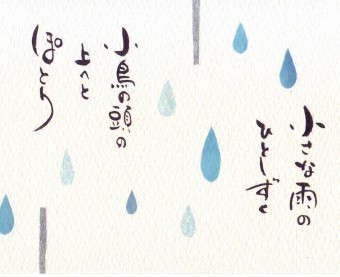 小さな雨の
ひとしずく
小鳥の頭の
上へと
ぽとり